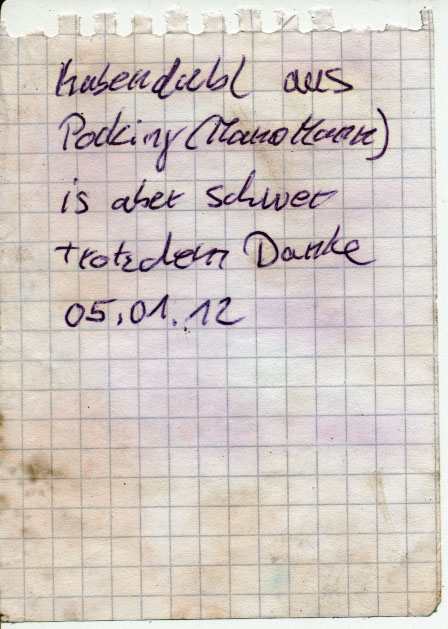 aus
Pocking (Mario Mann)
is aber schwer
trotzdem Danke
05.01.12